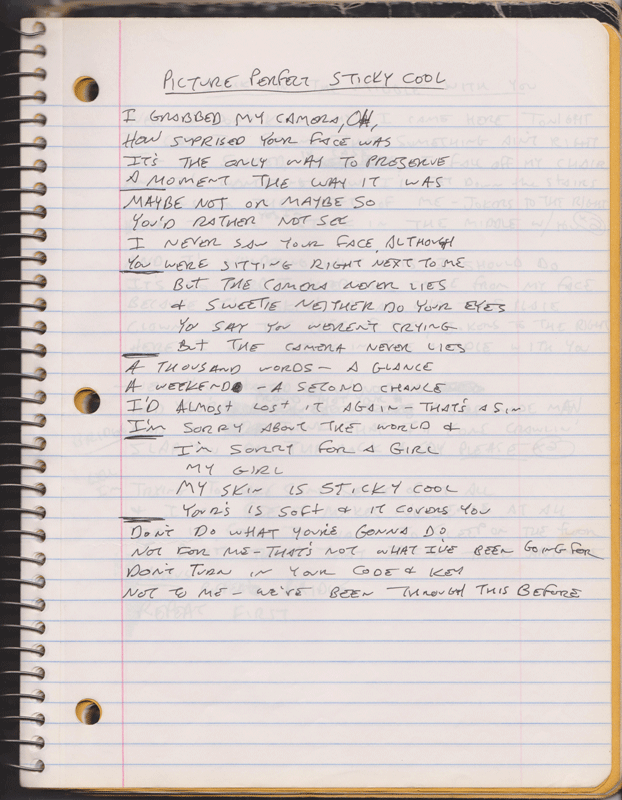 PICTURE PERFECT STICKY COOL
I GRABBED MY CAMERA, OH,
HOW SUPRISED YOUR FACE WAS
IT'S THE ONLY WAY TO PRESERVE
A MOMENT THE WAY IT WAS
MAYBE NOT OR MAYBE SO
YOU'D RATHER NOT SEE
I NEVER SAW YOUR FACE, ALTHOUGH
YOU WERE SITTING RIGHT NEXT TO ME
BUT THE CAMERA NEVER LIES
& SWEETIE NEITHER DO YOUR EYES
YOU SAY YOU WEREN'T CRYING
BUT THE CAMERA NEVER LIES
A THOUSAND WORDS - A GLANCE
A WEEKEND - A SECOND CHANCE
I'D ALMOST LOST IT AGAIN - THAT'S A SIN
I'M SORRY ABOUT THE WORLD &
I'M SORRY FOR A GIRL
MY GIRL
MY SKIN IS STICKY COOL
YOUR'S IS SOFT & IT COVERS YOU
DON'T DO WHAT YOU'RE GONNA DO
NOT FOR ME - THAT'S NOT WHAT I'VE BEEN GOING FOR
DON'T TURN IN YOUR CODE & KEY
NOT TO ME - WE'VE BEEN THROUGH THIS BEFORE
REPEAT FIRST